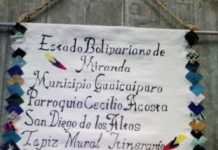 Estado Bolivariano de
Miranda
Municipio Guaicaipuro
Parroquia Cecilio Acosta
San Diego de los Altos
Tapiz Mural Itinerante